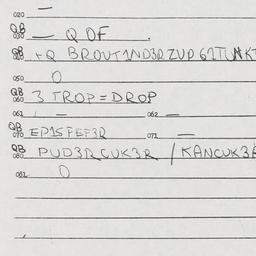 020 —
QB
030 — Q OF .
QB
+Q BROUT1ND3R ZUP 61TU
O
QB
060 3 TROP = DROP
061 — 062 —
QB
070 EP15PEF3R 071 —
QB
080 PUD3R CUK3R / KANCUK3R
081 O